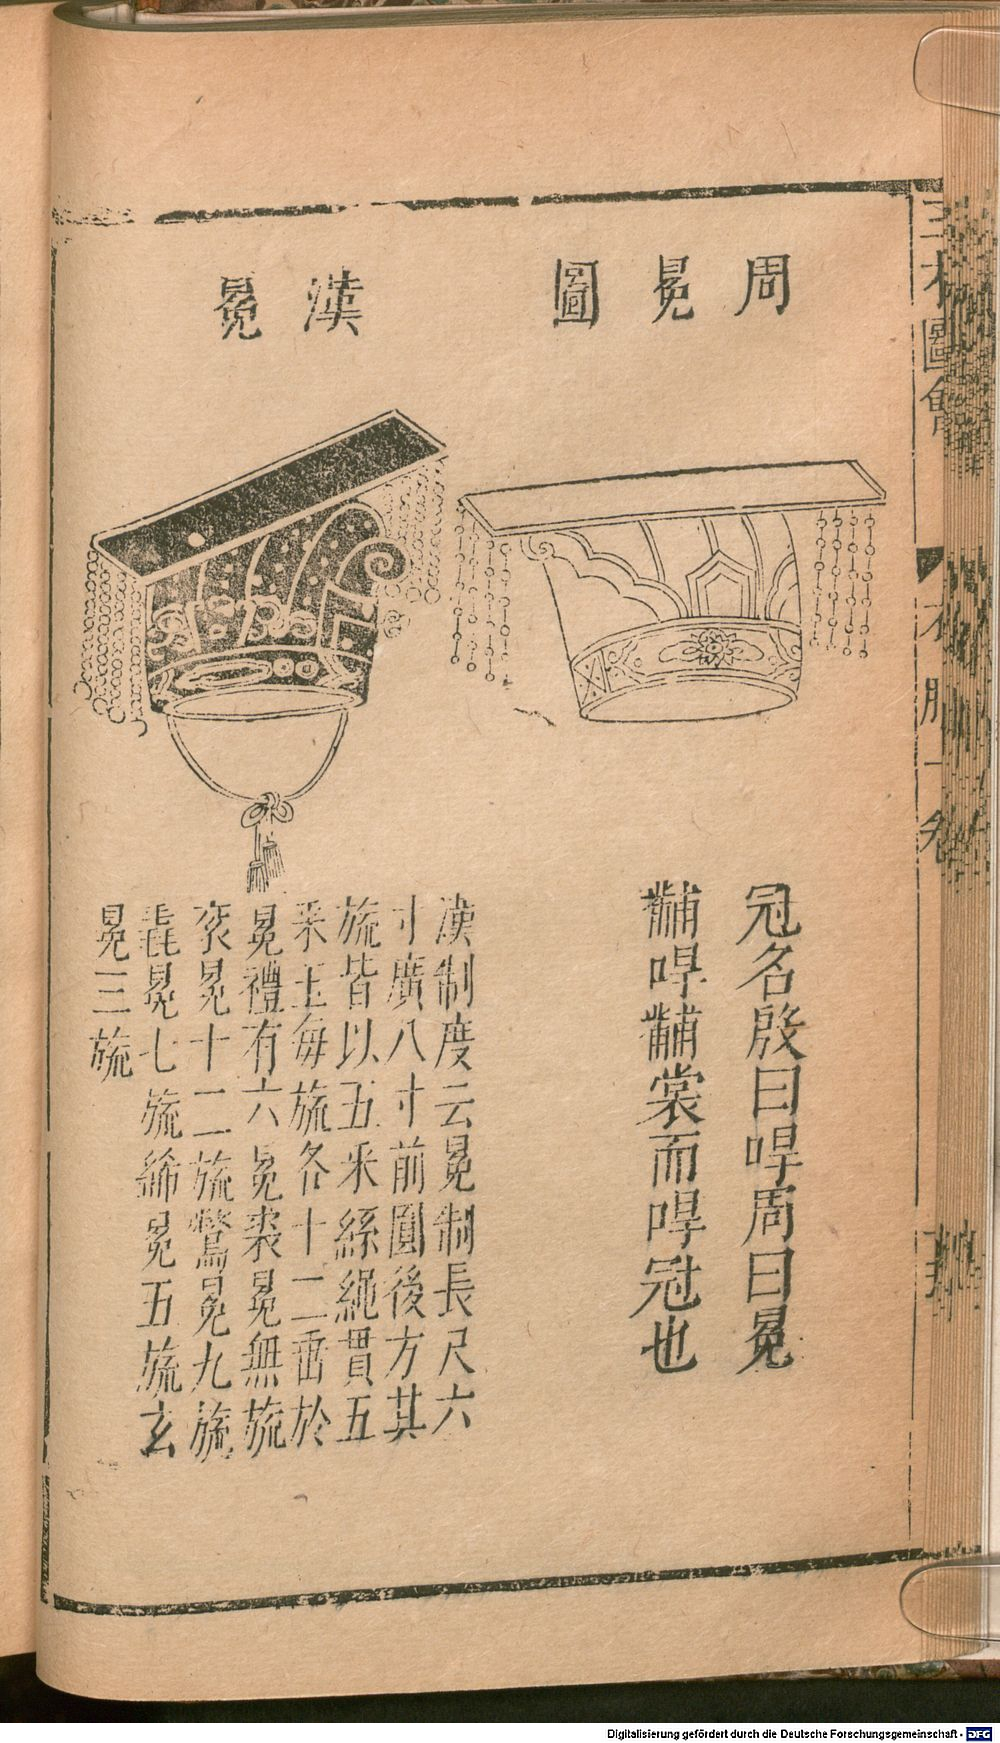 三才圖會
衣服一卷
周冕圖
冠名殷曰哻周曰冕
黼哻黼裳而哻冠也
漢冕
漢制度云冕制長尺六
寸廣八寸前圓後方其
旒皆以五采絲繩貫五
采玉每旒各十二垂於
冕禮有六冕裘冕無旒
衮冕十二旒鷩冕九旒
毳冕七旒絺冕五旒玄
冕三旒
Digitalisierung gefördert durch die Deutsche Forschungsgemeinschaft - DFG